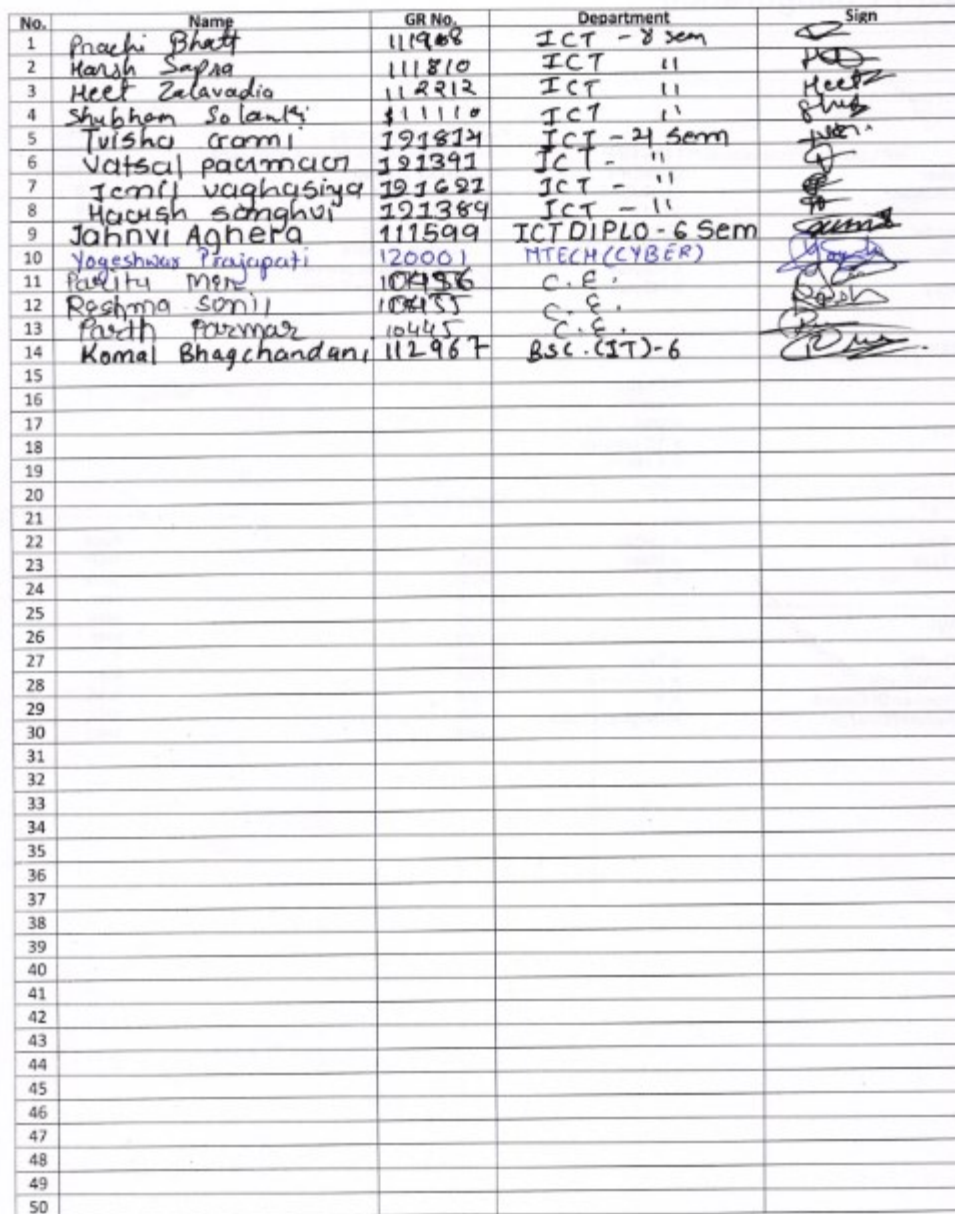 No. Name GR No. Department Sign
1 Prachi Bhatt 111908 ICT - 8 sem
2 Harsh Sapra 111810 ICT "
3 Heet Zalavadia 112212 ICT " Heet
4 Shubham Solanki 111110 ICT " Shub
5 Tuisha 121814 ICT - 4 Semm
6 Vatsal paarmaar 121391 ICT - "
7 Jemil vaghasiya 121621 ICT - "
8 Haarsh sanghvi 121389 ICT - "
9 Jahnvi Aghera 111599 ICT DIPLO - 6 Sem
10 Yogeshwar Prajapati 120001 MTECH (CYBER)
11 C.E.
12 Reshma C.E.
13 Parth Parmar 10445 C.E.
14 Komal Bhagchandani 112967 BSC.(IT)-6
15
16
17
18
19
20
21
22
23
24
25
26
27
28
29
30
31
32
33
34
35
36
37
38
39
40
41
42
43
44
45
46
47
48
49
50